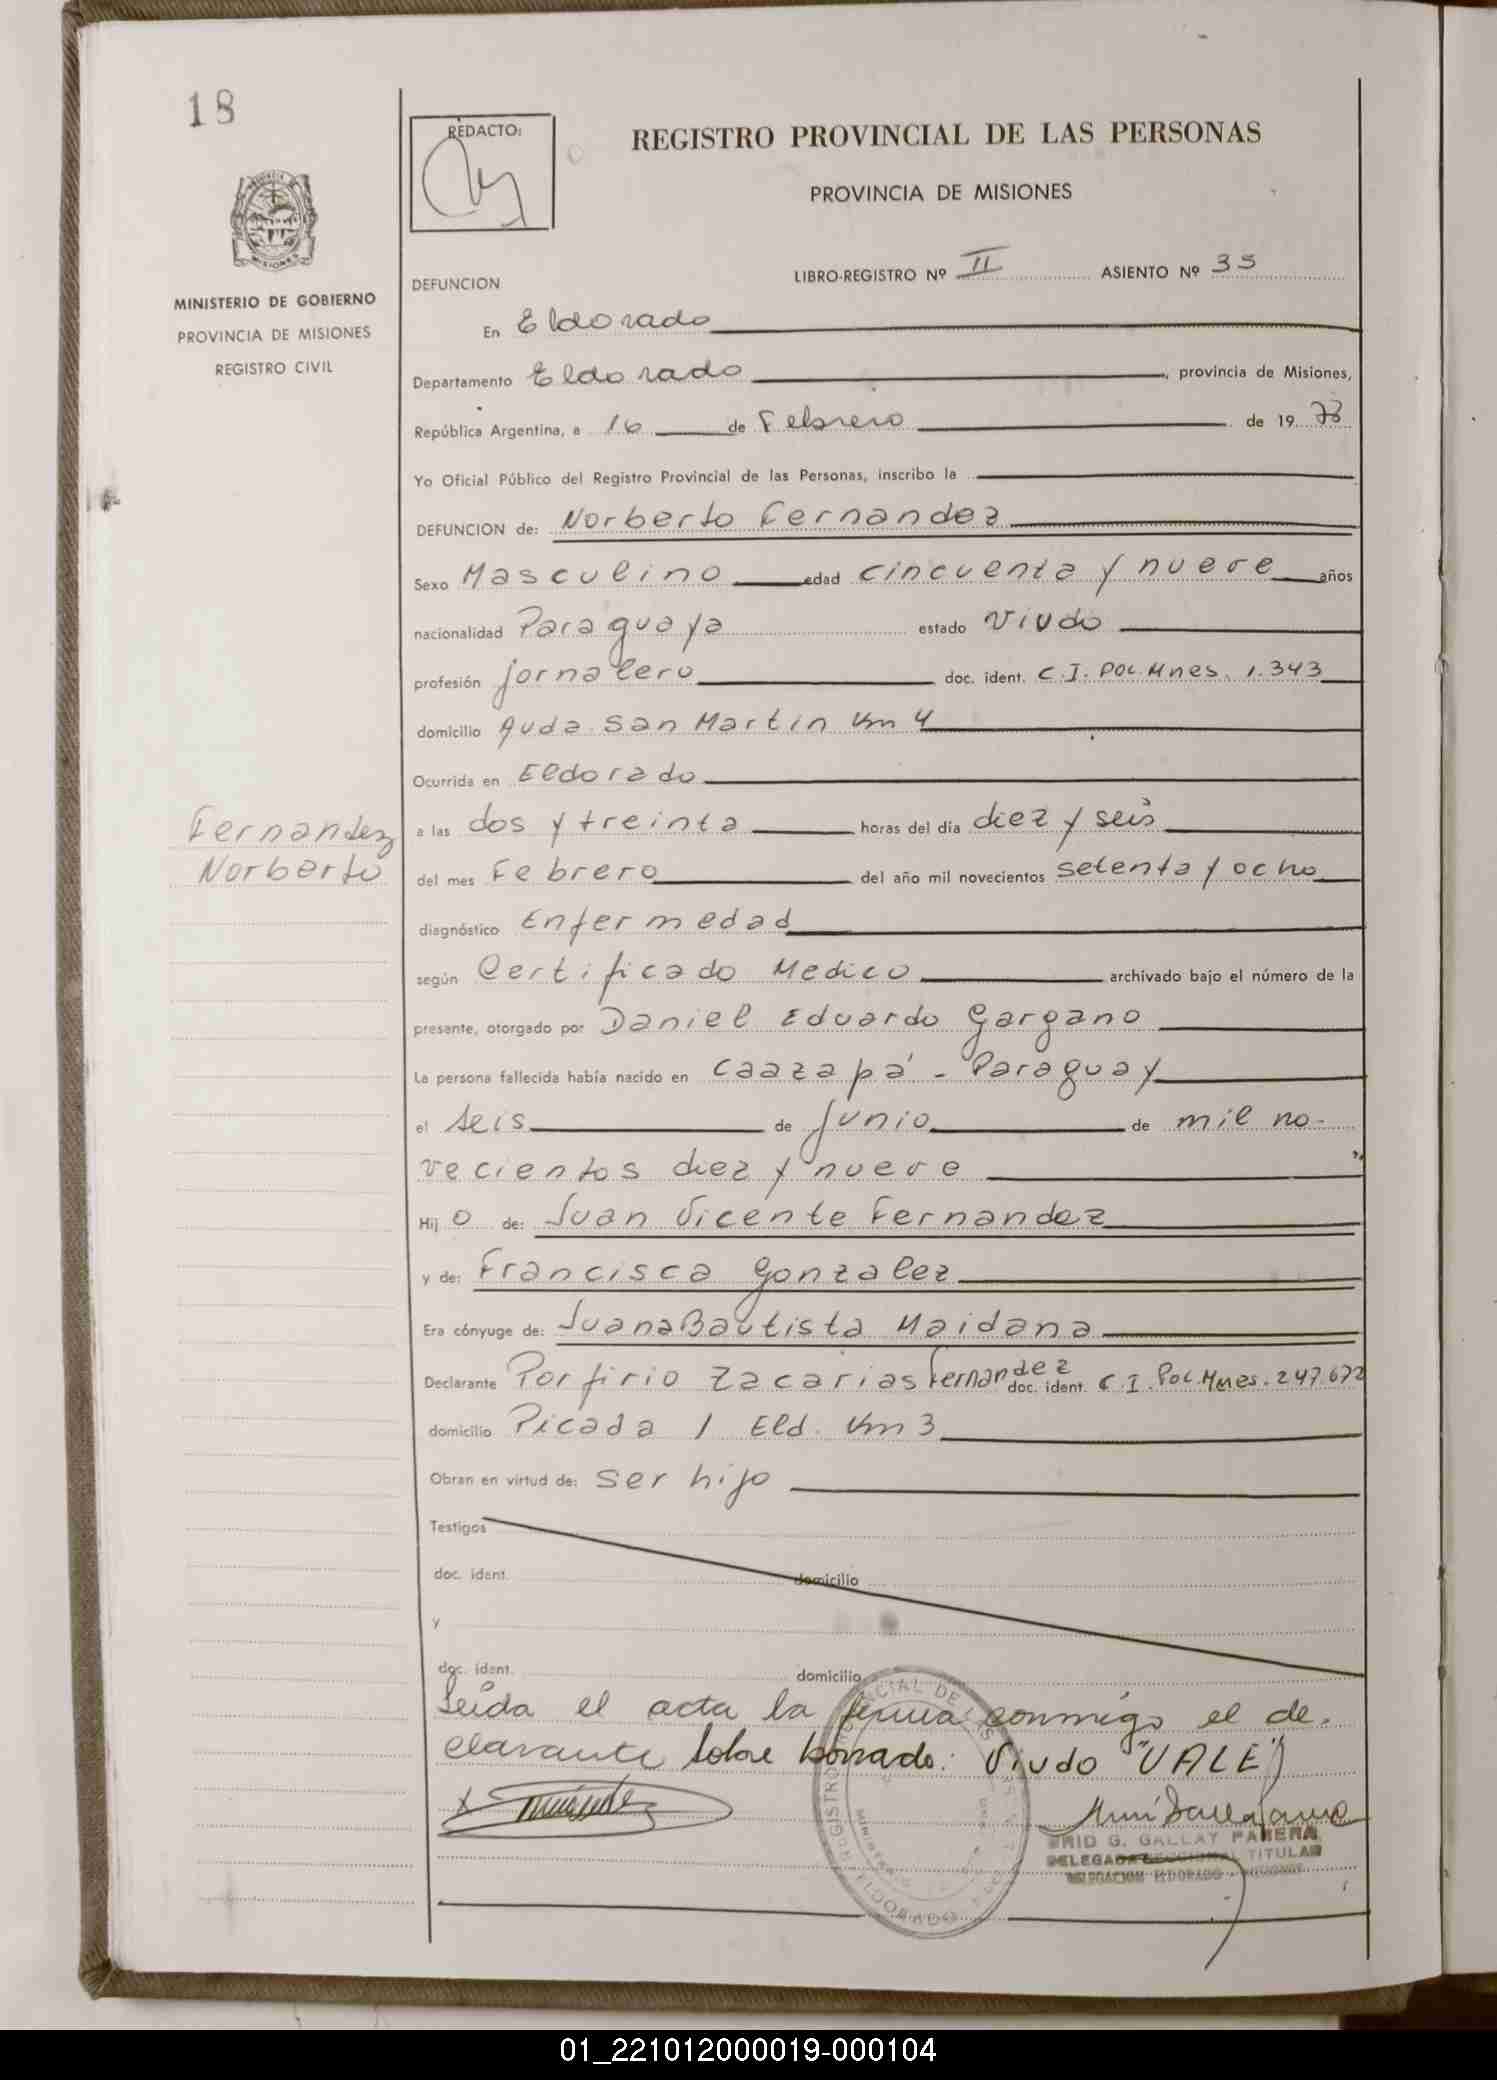 18
REDACTO:
REGISTRO PROVINCIAL DE LAS PERSONAS
PROVINCIA DE MISIONES
MISIONES
MINISTERIO DE GOBIERNO
PROVINCIA DE MISIONES
REGISTRO CIVIL
LIBRO-REGISTRO Nº II ASIENTO Nº 35
DEFUNCION
En Eldorado
Departamento Eldorado, provincia de Misiones,
República Argentina, a 16 de Febrero de 19 78
Yo Oficial Público del Registro Provincial de las Personas, inscribo la
DEFUNCION de: Norberto Fernandez
Sexo Masculino edad cincuenta y nueve años
nacionalidad Paraguaya estado Viudo
profesión jornalero doc. ident. C.I. POL. Mnes. 1.343
domicilio Avda. San Martin Km 4
Ocurrida en Eldorado
Fernandez
Norberto
a las dos y treinta horas del día diez y seis
del mes Febrero del año mil novecientos setenta y ocho
diagnóstico Enfermedad
según Certificado Medico archivado bajo el número de la
presente, otorgado por Daniel Eduardo Gargano
La persona fallecida había nacido en Caazapá - Paraguay
el seis de junio de mil no-
vecientos diez y nueve
Hij o de: Juan Vicente Fernandez
y de: Francisca Gonzalez
Era cónyuge de: Juana Bautista Maidana
Declarante Porfirio Zacarias Fernandez doc. ident. C.I. Pol. Mnes. 247.672
domicilio Picada 1 Eld. Km 3
Obran en virtud de: ser hijo
Testigos
doc. ident. domicilio
y
doc. ident. domicilio
Leída el acta la firma conmigo el de-
clarante Sobre borrado: Viudo "VALE"
G. GALLAY PARERA
DELEGADA SECCIONAL TITULAR
DELEGACION ELDORADO - MISIONES
ELDORADO
01_221012000019-000104